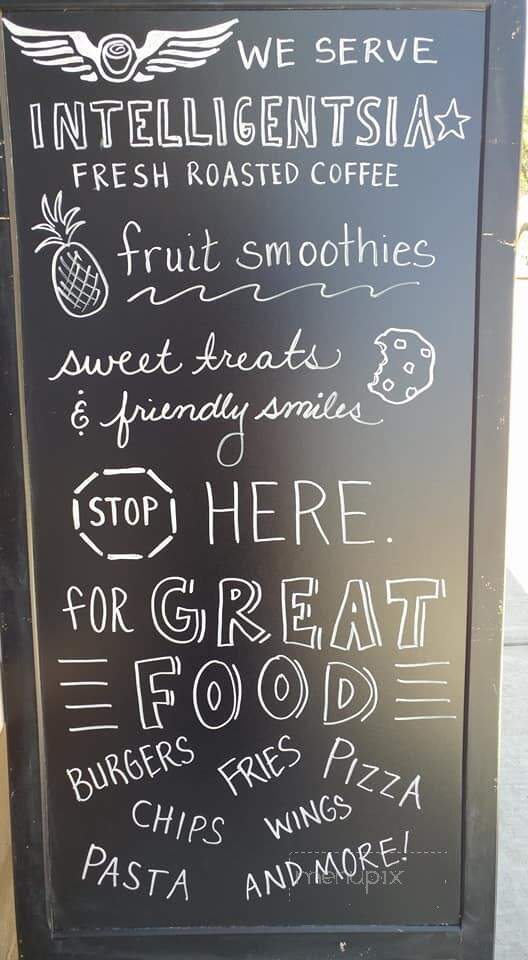 WE SERVE
INTELLIGENTSIA
FRESH ROASTED COFFEE
fruit smoothies
sweet treats
& friendly smiles
STOP HERE.
for GREAT
FOOD
BURGERS FRIES PIZZA
CHIPS WINGS
PASTA AND MORE!
menupix